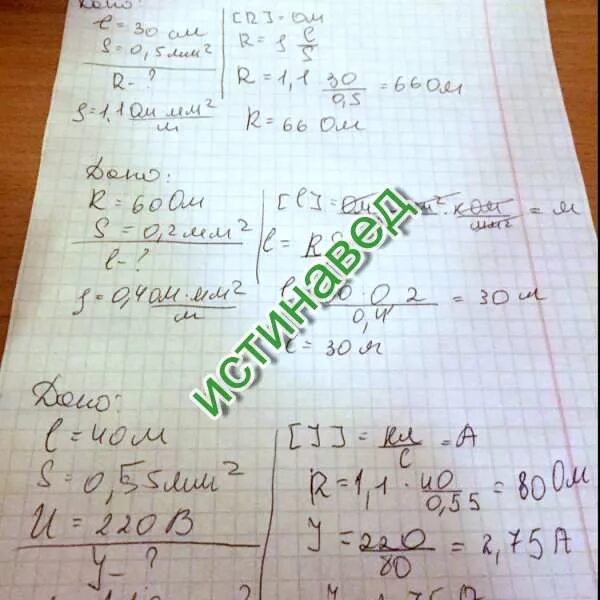 Дано:
l = 30 см
S = 0,5 мм²
R - ?
ρ = 1,1 Ом·мм²/м
[R] = Ом
R = ρ l/S
R = 1,1 30/0,5 = 66 Ом
R = 66 Ом
Дано:
R = 60 Ом
S = 0,2 мм²
l - ?
ρ = 0,4 Ом·мм²/м
= м
l = R
0,2/0,4 = 30 м
l = 30 м
истинавед
Дано:
l = 40 м
S = 0,55 мм²
U = 220 В
J - ?
[J] = Кл/с = А
R = 1,1 · 40/0,55 = 80 Ом
J = 220/80 = 2,75 А